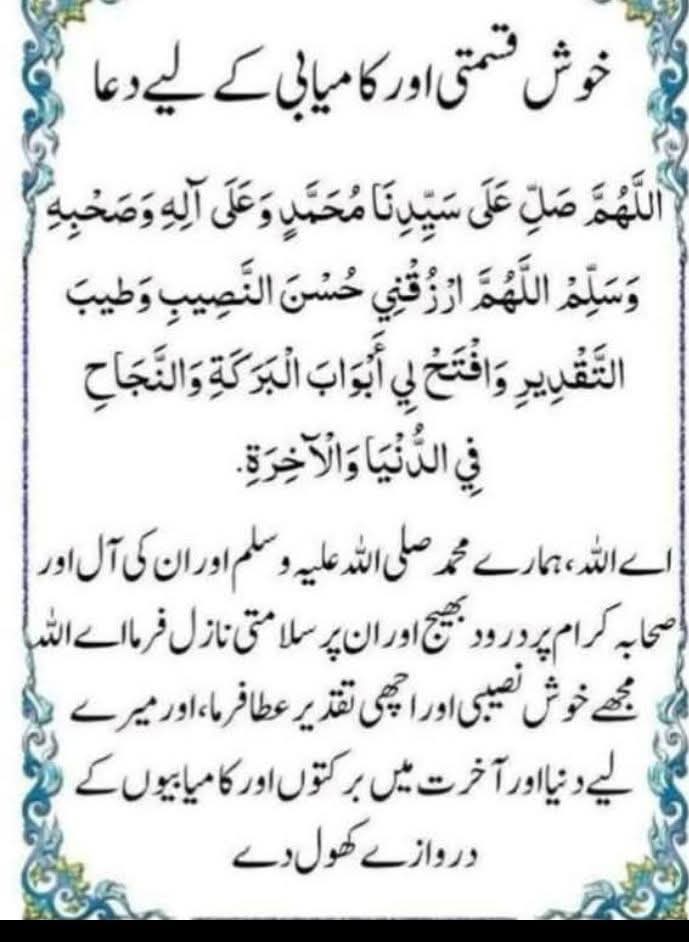 خوش قسمتی اور کامیابی کے لیے دعا
اللَّهُمَّ صَلِّ عَلَى سَيِّدِنَا مُحَمَّدٍ وَعَلَى آلِهِ وَصَحْبِهِ
وَسَلِّمْ اللَّهُمَّ ارْزُقْنِي حُسْنَ النَّصِيبِ وَطِيبَ
التَّقْدِيرِ وَافْتَحْ لِي أَبْوَابَ الْبَرَكَةِ وَالنَّجَاحِ
فِي الدُّنْيَا وَالْآخِرَةِ.
اے اللہ، ہمارے محمد صلی اللہ علیہ وسلم اور ان کی آل اور
صحابہ کرام پر درود بھیج اور ان پر سلامتی نازل فرما اے اللہ
مجھے خوش نصیبی اور اچھی تقدیر عطا فرما، اور میرے
لیے دنیا اور آخرت میں برکتوں اور کامیابیوں کے
دروازے کھول دے